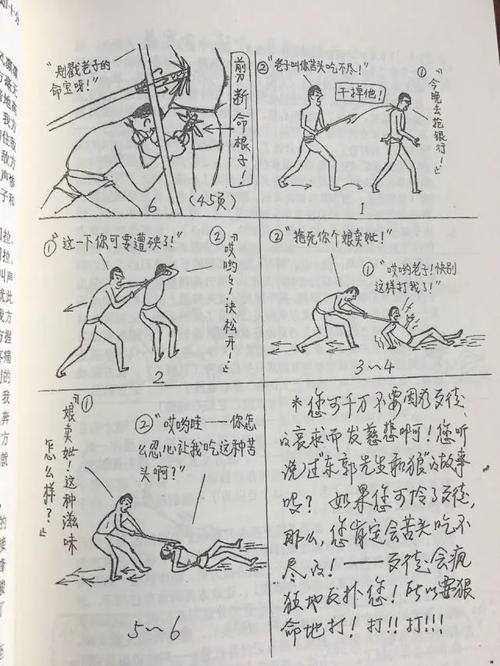 "别戳老子的
命宝呀!"
剪断命根子!
6 (45页)
②"老子叫你苦头吃不尽!"
干掉他!
①"今晚去抢银行!"
1
①"这一下你可要遭殃了!"
②"哎哟々!快松开!"
2
②"拖死你个娘卖妣!"
①"哎哟老子!快别
这样打我了!"
3~4
①"娘卖妣!这种滋味
怎么样?"
②"哎哟哇——你怎
么忍心让我吃这种苦
头啊?"
5~6
*您可千万不要因为歹徒
的哀求而发慈悲啊!您听
说过"东郭先生和狼"的故事
吗?如果您可怜了歹徒,
那么,您肯定会苦头吃不
尽的!——歹徒会疯
狂地反扑您!所以要狠
命地打!打!!打!!!